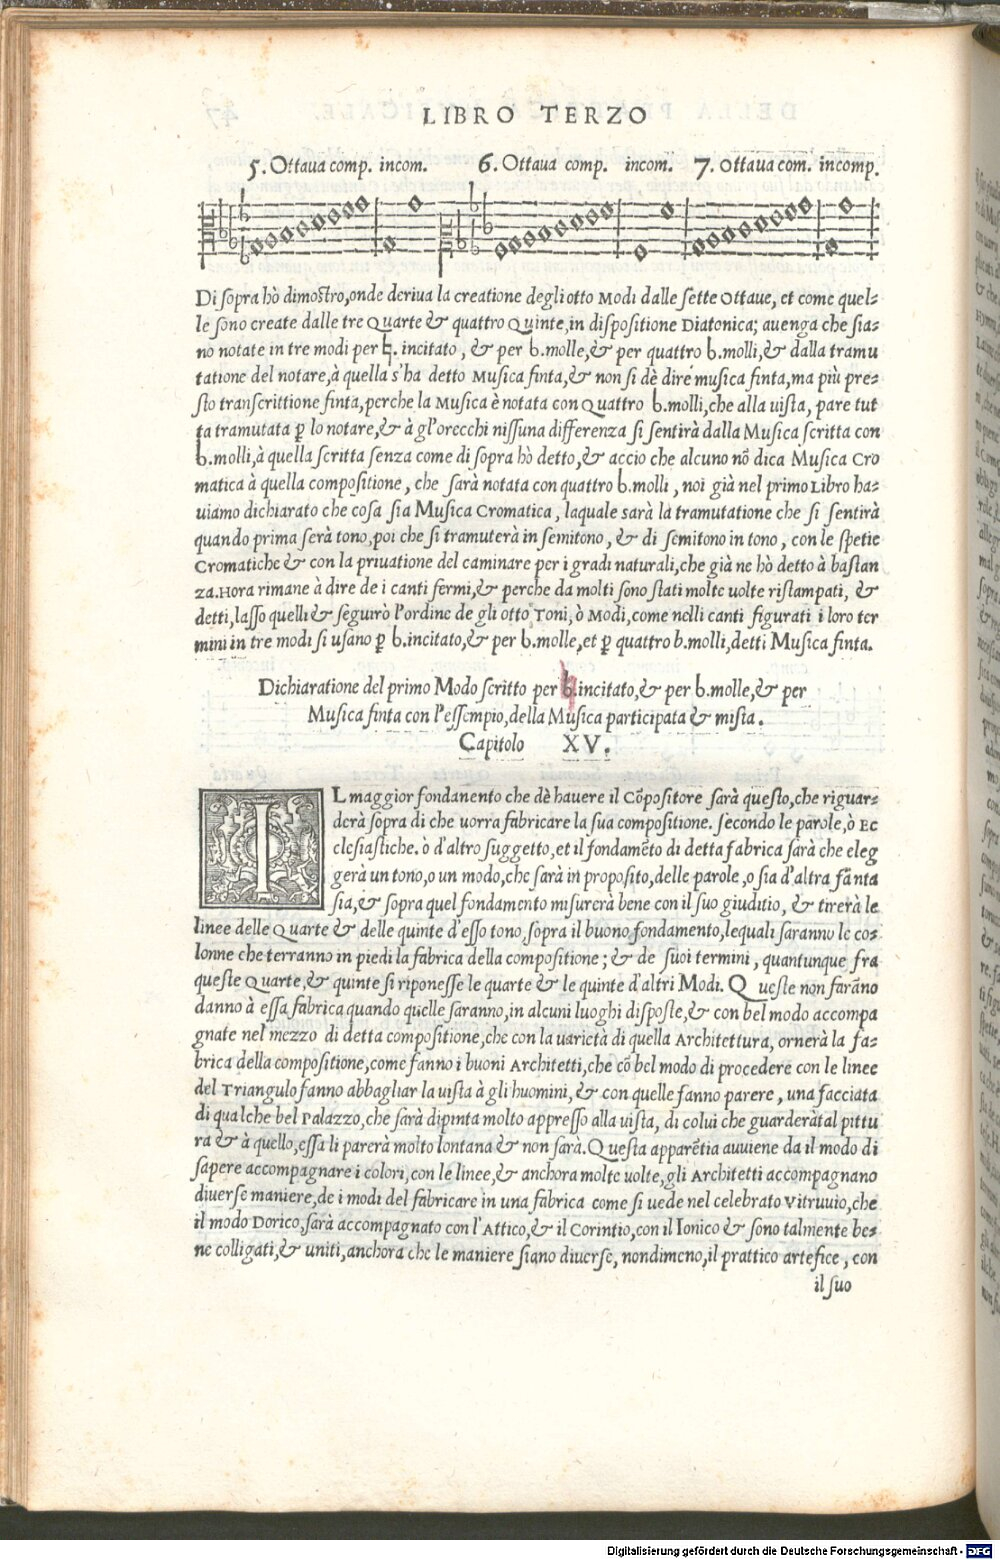 LIBRO TERZO
5. Ottaua comp. incom. 6. Ottaua comp. incom. 7. Ottaua com. incomp.
Di sopra hò dimostro, onde deriua la creatione degli otto Modi dalle sette Ottaue, et come quel⸗
le sono create dalle tre Quarte & quattro Quinte, in dispositione Diatonica; auenga che sia⸗
no notate in tre modi per ♮. incitato, & per b.molle, & per quattro b.molli, & dalla tramu
tatione del notare, à quella s'ha detto Musica finta, & non si dè dire musica finta, ma più pre⸗
sto transcrittione finta, perche la Musica è notata con Quattro b.molli, che alla uista, pare tut
ta tramutata ꝑ lo notare, & à gl'orecchi nissuna differenza si sentirà dalla Musica scritta con
b.molli, à quella scritta senza come di sopra hò detto, & accio che alcuno nõ dica Musica Cro
matica à quella compositione, che sarà notata con quattro b.molli, noi già nel primo Libro ha⸗
uiamo dichiarato che cosa sia Musica Cromatica, laquale sarà la tramutatione che si sentirà
quando prima serà tono, poi che si tramuterà in semitono, & di semitono in tono, con le spetie
Cromatiche & con la priuatione del caminare per i gradi naturali, che già ne hò detto à bastan
za. Hora rimane à dire de i canti fermi, & perche da molti sono stati molte uolte ristampati, &
detti, lasso quelli & seguirò l'ordine de gli otto Toni, ò Modi, come nelli canti figurati i loro ter
mini in tre modi si usano ꝑ b.incitato, & per b.molle, et ꝑ quattro b.molli, detti Musica finta.
Dichiaratione del primo Modo scritto per ♮.incitato, & per b.molle, & per
Musica finta con l'essempio, della Musica participata & mista.
Capitolo XV.
IL maggior fondanento che dè hauere il Cõpositore sarà questo, che riguar⸗
derà sopra di che uorra fabricare la sua compositione. secondo le parole, ò Ec
clesiastiche. ò d'altro suggetto, et il fondamẽto di detta fabrica sarà che eleg
gerà un tono, o un modo, che sarà in proposito, delle parole, o sia d'altra fãnta
sia, & sopra quel fondamento misurerà bene con il suo giuditio, & tirerà le
linee delle Quarte & delle quinte d'esso tono, sopra il buono fondamento, lequali saranno le co⸗
lonne che terranno in piedi la fabrica della compositione; & de suoi termini, quantunque fra
queste Quarte, & quinte si riponesse le quarte & le quinte d'altri Modi. Queste non farãno
danno à essa fabrica quando quelle saranno, in alcuni luoghi disposte, & con bel modo accompa
gnate nel mezzo di detta compositione, che con la uarietà di quella Architettura, ornerà la fa⸗
brica della compositione, come fanno i buoni Architetti, che cõ bel modo di procedere con le linee
del Triangulo fanno abbagliar la uista à gli huomini, & con quelle fanno parere, una facciata
di qualche bel Palazzo, che sarà dipinta molto appresso alla uista, di colui che guarderà tal pittu
ra & à quello, essa li parerà molto lontana & non sarà. Questa apparẽtia auuiene da il modo di
sapere accompagnare i colori, con le linee, & anchora molte uolte, gli Architetti accompagnano
diuerse maniere, de i modi del fabricare in una fabrica come si uede nel celebrato Vitruuio, che
il modo Dorico, sarà accompagnato con l'Attico, & il Corintio, con il Ionico & sono talmente be⸗
ne colligati, & uniti, anchora che le maniere siano diuerse, nondimeno, il prattico artefice, con
il suo
Digitalisierung gefördert durch die Deutsche Forschungsgemeinschaft - DFG